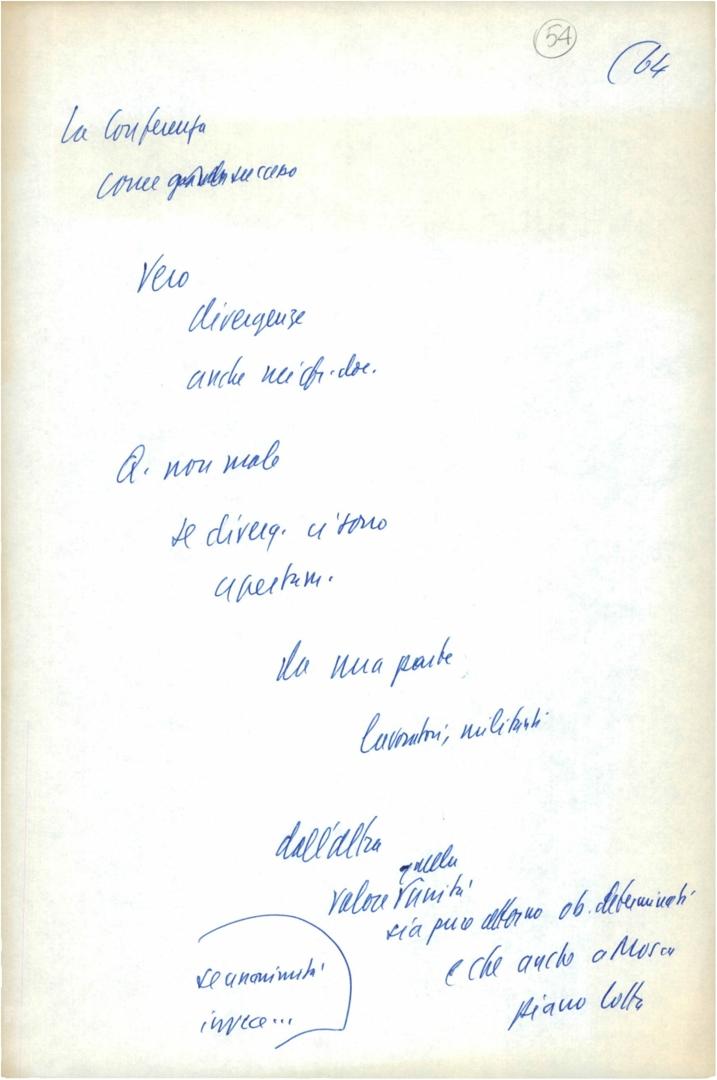 54
(64
La Conferenza
come successo
Vero
divergenze
anche nei
Q. non male
se diverg. ci sono
apertam.
da una parte
lavoratori, militanti
dall'altra
quella
valore unità
sia pure attorno ob. determinati
e che anche a Mosca
piano lotta
se unanimità
invece...